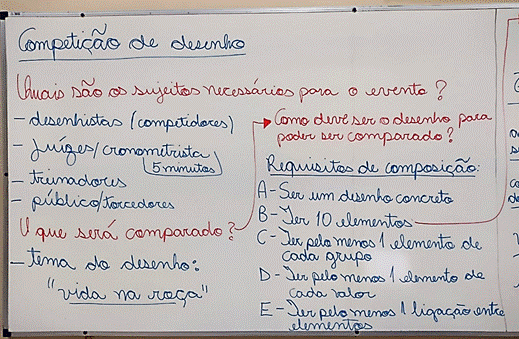 Competição de desenho
Quais são os sujeitos necessários para o evento?
- desenhistas (competidores)
- juízes/cronometrista
5 minutos
- treinadores
- público/torcedores
O que será comparado?
- tema do desenho:
"vida na roça"
Como deve ser o desenho para
poder ser comparado?
Requisitos de composição:
A- Ser um desenho concreto
B- Ter 10 elementos
C- Ter pelo menos 1 elemento de
cada grupo
D- Ter pelo menos 1 elemento de
cada valor
E- Ter pelo menos 1 ligação entre
elementos